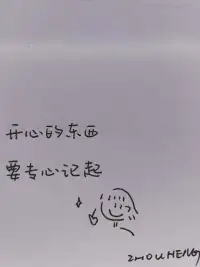 开心的东西
要专心记起
ZHOU HENG